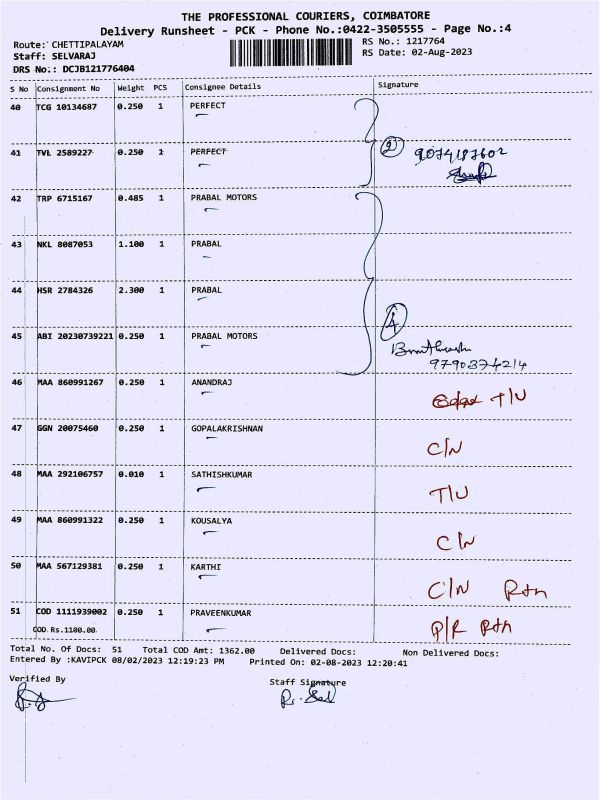 THE PROFESSIONAL COURIERS, COIMBATORE
Delivery Runsheet - PCK - Phone No.:0422-3505555 - Page No.:4
Route: CHETTIPALAYAM RS No.: 1217764
Staff: SELVARAJ RS Date: 02-Aug-2023
DRS No.: DCJB121776404
S No Consignment No Weight PCS Consignee Details Signature
40 TCG 10134687 0.250 1 PERFECT
41 TVL 2589227 0.250 1 PERFECT
2 9074187602
42 TRP 6715167 0.485 1 PRABAL MOTORS
43 NKL 8087053 1.100 1 PRABAL
44 HSR 2784326 2.300 1 PRABAL
4
45 ABI 20230739221 0.250 1 PRABAL MOTORS
9790374214
46 MAA 860991267 0.250 1 ANANDRAJ T/U
47 GGN 20075460 0.250 1 GOPALAKRISHNAN C/N
48 MAA 292106757 0.010 1 SATHISHKUMAR T/U
49 MAA 860991322 0.250 1 KOUSALYA C/N
50 MAA 567129381 0.250 1 KARTHI C/N Rtn
51 COD 1111939002 0.250 1 PRAVEENKUMAR P/R Rtn
COD Rs.1100.00
Total No. Of Docs: 51 Total COD Amt: 1362.00 Delivered Docs: Non Delivered Docs:
Entered By :KAVIPCK 08/02/2023 12:19:23 PM Printed On: 02-08-2023 12:20:41
Verified By Staff Signature